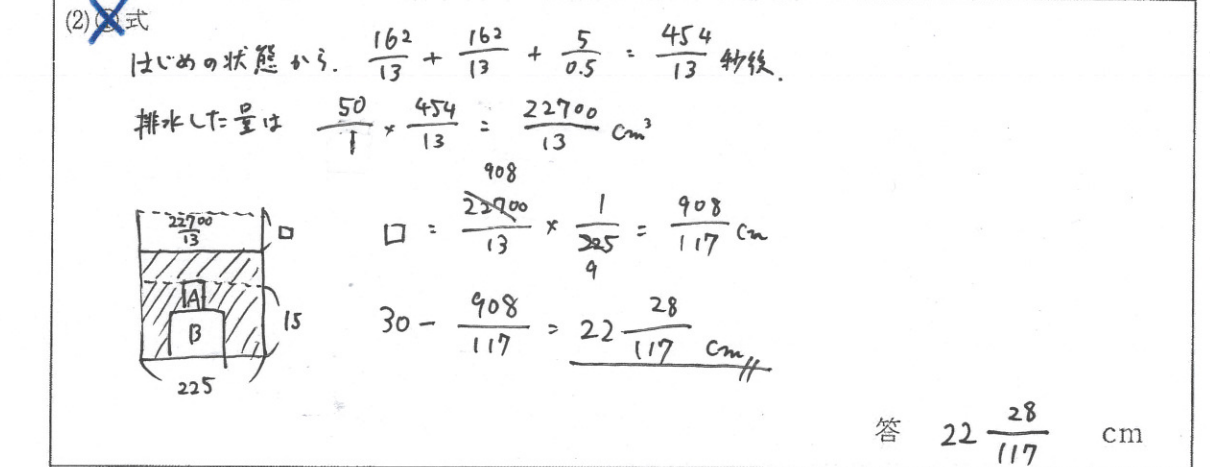 (2)式
はじめの状態から. 162/13 + 162/13 + 5/0.5 = 454/13 秒後.
排水した量は 50/1 × 454/13 = 22700/13 cm³
908
□ = 22700/13 × 1/225 = 908/117 cm
9
22700/13
□
A
B
15
225
30 - 908/117 = 22 28/117 cm
答 22 28/117 cm